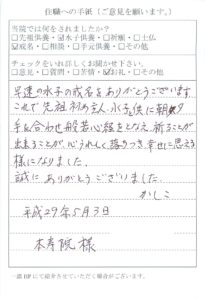 住職への手紙（ご意見を願います。）
当院では何をされましたか？
□先祖供養・☑水子供養・□祈願・□土仏
☑戒名・□相談・□手元供養・□その他
チェックをいれ詳しくお聞かせ下さい。
□意見・□質問・□苦情・☑お礼・□その他
早速の水子の戒名をありがとうございます
これで先祖初め主人、水子供に朝夕
手を合わせ般若心経をとなえ、祈ることが
出来ることが、心うれしく、落ちつき幸せに思える
様になりました。
誠にありがとうございました。
かしこ
平成29年5月3日
本寿院 様
一部HPにて紹介させていただく場合がございます。